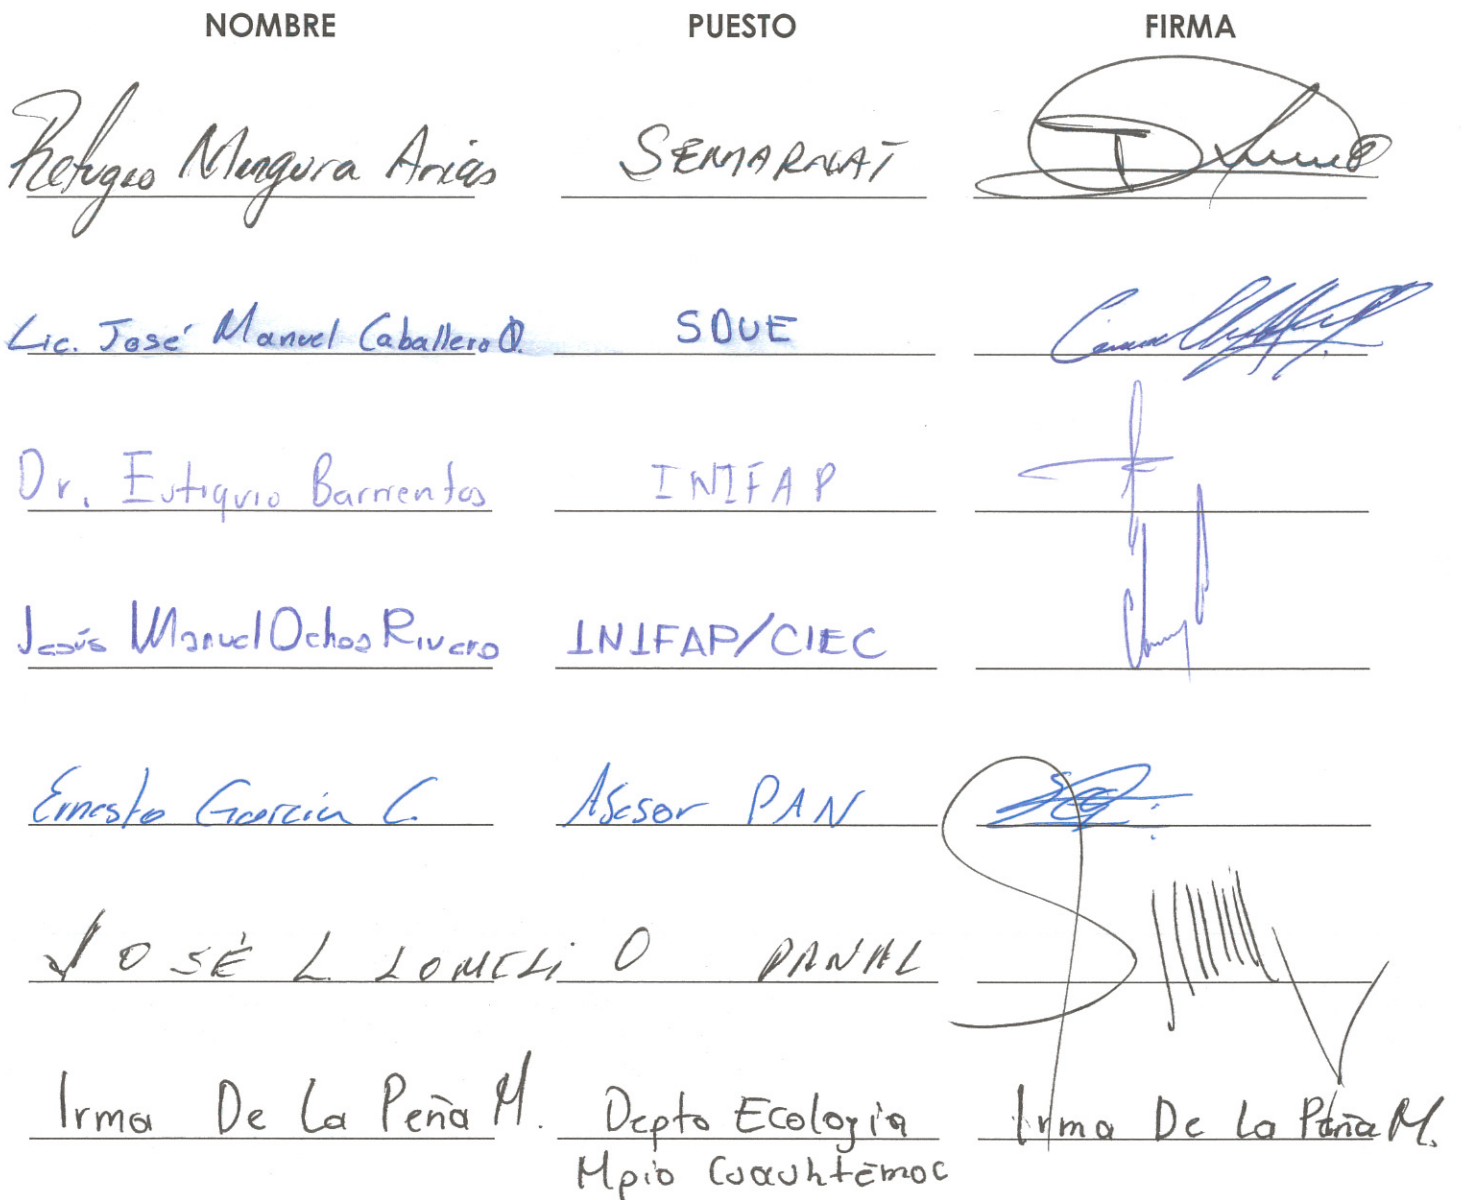 NOMBRE PUESTO FIRMA
Refugio Mengura Arias SEMARNAT
Lic. José Manuel Caballero O. SDUE
Dr. Eutiquio Barrientos INIFAP
Jesús Manuel Ochoa Rivero INIFAP/CIEC
Ernesto García C. Asesor PAN
JOSÉ L LOMELI O PANAL
Irma De La Peña M. Depto Ecología Irma De La Peña M.
Mpio Cuauhtémoc